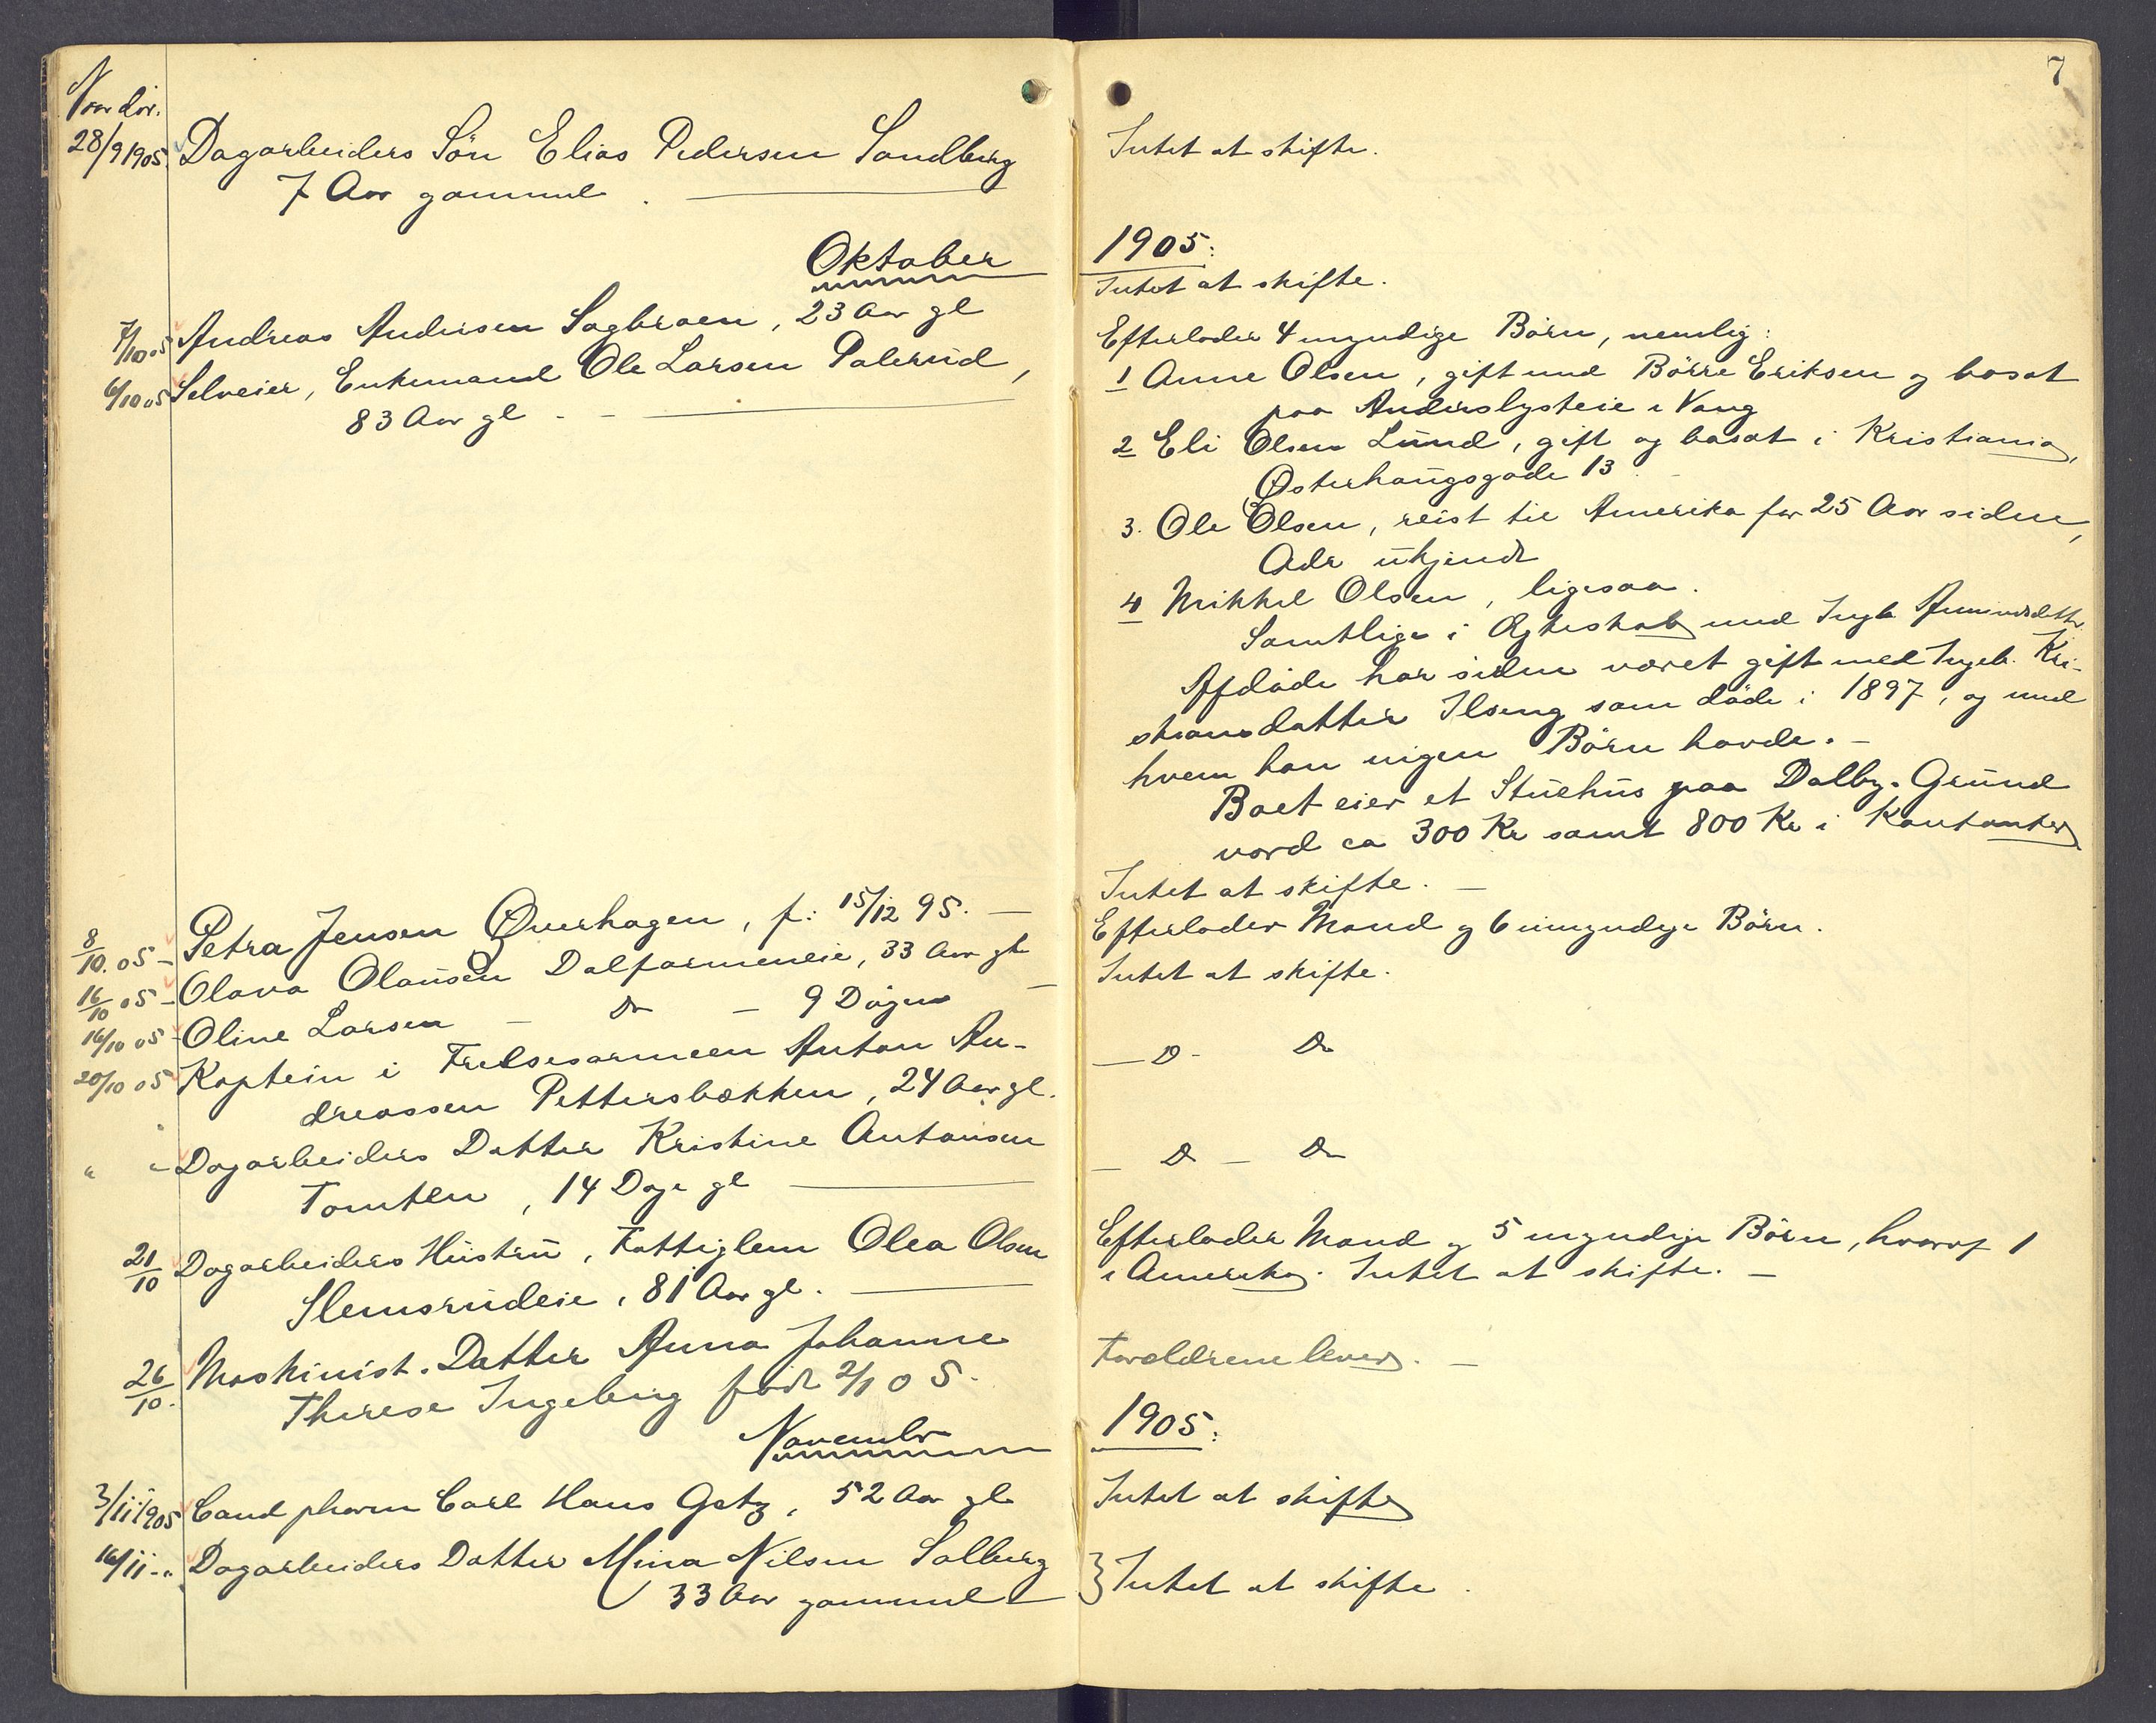 Naar död.
28/9 1905. Dagarbeiders Sön Elias Pedersen Sandberg
7 Aar gammel.
Oktober
7/10 05 Andreas Andersen Sagbraen, 23 Aar gl
6/10 05 Selveier, Enkemand Ole Larsen Palerud,
83 Aar gl
8/10. 05 - Petra Jensen Överhagen, f: 15/12 95. -
16/10 05 - Olava Olausen Dalfarmeneie, 33 Aar gl
16/10 05 - Oline Larsen - Do - 9 Dögn -
20/10 05 Kaptein i Frelsesarmeen Anton An-
dreassen Pettersbækken, 24 Aar gl.
" " - Dagarbeiders Datter Kristine Antonsen
Tomten, 14 Dage gl
21/10 Dagarbeiders Hustru, Fattiglem Olea Olsen
Slemsrudeie, 81 Aar gl.
26/10. Maskinist. Datter Anna Johanne
Therese Ingeborg född 2/1 05.
November
3/11 1905 Cand pharm Carl Hans Gatz, 52 Aar gl
16/11 - " Dagarbeiders Datter Mina Nilsen Solberg
33 Aar gammel
7
Intet at skifte.
1905:
Intet at skifte.
Efterlader 4 myndige Börn, nemlig:
1 Anne Olsen, gift med Börre Eriksen og bosat
paa Anderslysteie i Vang
2 Eli Olsen Lund, gift og bosat i Kristiania,
Østerhaugsgade 13
3. Ole Olsen, reist til Amerika for 25 Aar siden,
Adr ukjendt
4 Mikkel Olsen, ligesaa.
Samtlige i Ægteskab med Ingb.
Afdöde har siden været gift med Ingeb. Kri-
stiansdatter Ilseng som döde i 1897, og med
hvem han ingen Börn havde. -
Boet eier et Stuehus paa Dalby. Grund
værd ca 300 Kr samt 800 Kr i Kontanter
Intet at skifte. -
Efterlader Mand og 6 umyndige Börn.
Intet at skifte.
- D - Do
- D - Do
Efterlader Mand og 5 myndige Börn, hvoraf 1
i Amerika. Intet at skifte. -
Forældrene lever. -
1905:
Intet at skifte
} Intet at skifte.